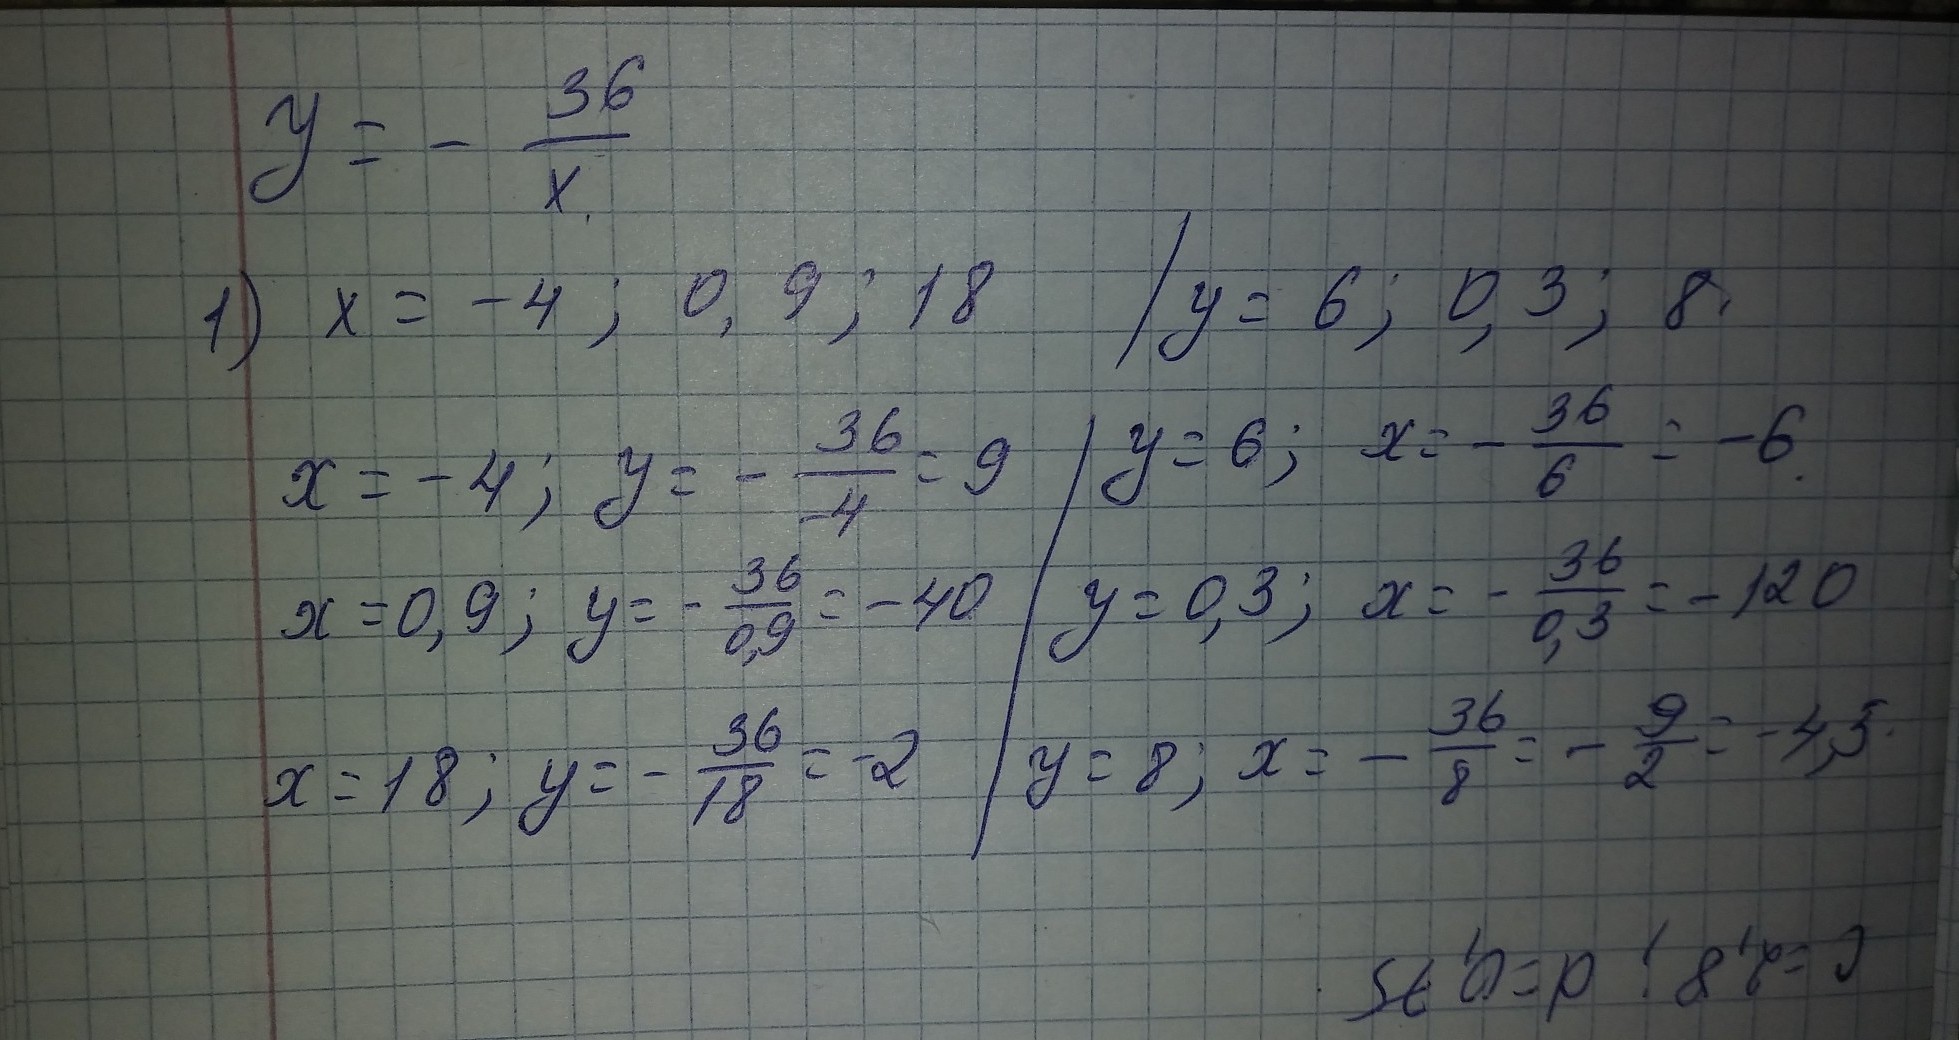 y = - 36/x
1) x = -4; 0,9; 18 / y = 6; 0,3; 8.
x = -4; y = - 36/-4 = 9 / y = 6; x = - 36/6 = -6.
x = 0,9; y = - 36/0,9 = -40 / y = 0,3; x = - 36/0,3 = -120
x = 18; y = - 36/18 = -2 / y = 8; x = - 36/8 = - 9/2 = -4,5.